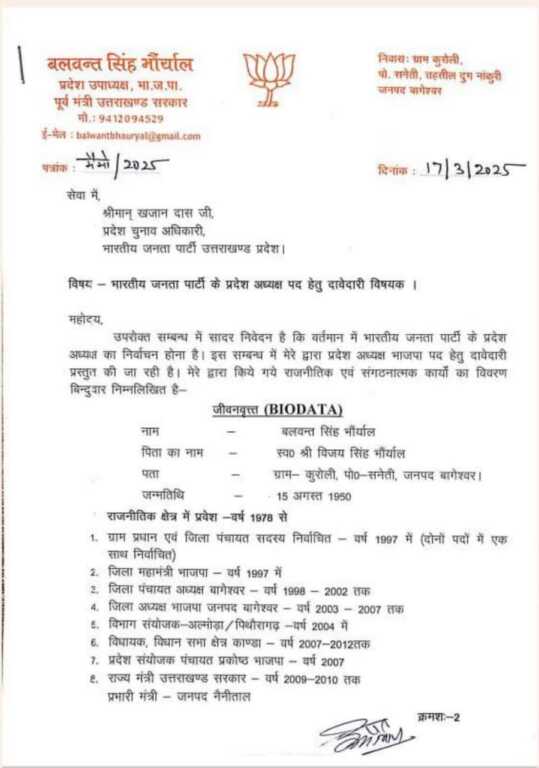 बलवन्त सिंह भौंर्याल
प्रदेश उपाध्यक्ष, भा.ज.पा.
पूर्व मंत्री उत्तराखण्ड सरकार
मो.: 9412094529
ई-मेल : balwantbhauryal@gmail.com
निवासः ग्राम कुरोली,
पो. सनेती, तहसील दुग नांकुरी
जनपद बागेश्वर
पत्रांक : मैमो/2025
दिनांक : 17/3/2025
सेवा में,
श्रीमान् खजान दास जी,
प्रदेश चुनाव अधिकारी,
भारतीय जनता पार्टी उत्तराखण्ड प्रदेश।
विषय – भारतीय जनता पार्टी के प्रदेश अध्यक्ष पद हेतु दावेदारी विषयक ।
महोदय,
उपरोक्त सम्बन्ध में सादर निवेदन है कि वर्तमान में भारतीय जनता पार्टी के प्रदेश
अध्यक्ष का निर्वाचन होना है। इस सम्बन्ध में मेरे द्वारा प्रदेश अध्यक्ष भाजपा पद हेतु दावेदारी
प्रस्तुत की जा रही है। मेरे द्वारा किये गये राजनीतिक एवं संगठनात्मक कार्यो का विवरण
बिन्दुवार निम्नलिखित है–
जीवनवृत्त (BIODATA)
नाम – बलवन्त सिंह भौंर्याल
पिता का नाम – स्व0 श्री विजय सिंह भौंर्याल
पता – ग्राम– कुरोली, पो0–सनेती, जनपद बागेश्वर।
जन्मतिथि – 15 अगस्त 1950
राजनीतिक क्षेत्र में प्रवेश –वर्ष 1978 से
१. ग्राम प्रधान एवं जिला पंचायत सदस्य निर्वाचित – वर्ष 1997 में (दोनों पदों में एक
साथ निर्वाचित)
२. जिला महामंत्री भाजपा – वर्ष 1997 में
३. जिला पंचायत अध्यक्ष बागेश्वर – वर्ष 1998 – 2002 तक
४. जिला अध्यक्ष भाजपा जनपद बागेश्वर – वर्ष 2003 – 2007 तक
५. विभाग संयोजक–अल्मोड़ा/पिथौरागढ़ –वर्ष 2004 में
६. विधायक, विधान सभा क्षेत्र काण्डा – वर्ष 2007–2012तक
७. प्रदेश संयोजक पंचायत प्रकोष्ठ भाजपा – वर्ष 2007
८. राज्य मंत्री उत्तराखण्ड सरकार – वर्ष 2009–2010 तक
प्रभारी मंत्री – जनपद नैनीताल
क्रमशः–2